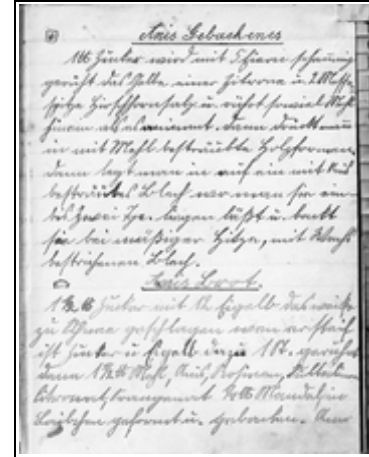 Anis Gebackenes
1 ℔ Zucker wird mit 5 Eiern schaumig
gerührt das Gelbe einer Zitrone u. 2 Messer
spitze Hirschhornsalz u. rührt soviel Mehl
hinein als es annimmt. dann drückt man
in mit Mehl bestäubte Holzformen
dann legt man in auf ein mit Anis
bestreutes Blech wo man sie ein
bis zwei Tge. liegen läßt u. backt
sie bei mäßiger Hitze, mit Wachs
bestrichenen Blech.
Anis Brot.
Zucker mit 12 Eigelb das weiße
zu Schnee geschlagen wenn er steif
ist Zucker u. Eigelb dazu 1 St. gerührt
dann 1½ ℔ Mehl, Anis, Rosinen,
Mandeln
Laibchen geformt u. gebacken.